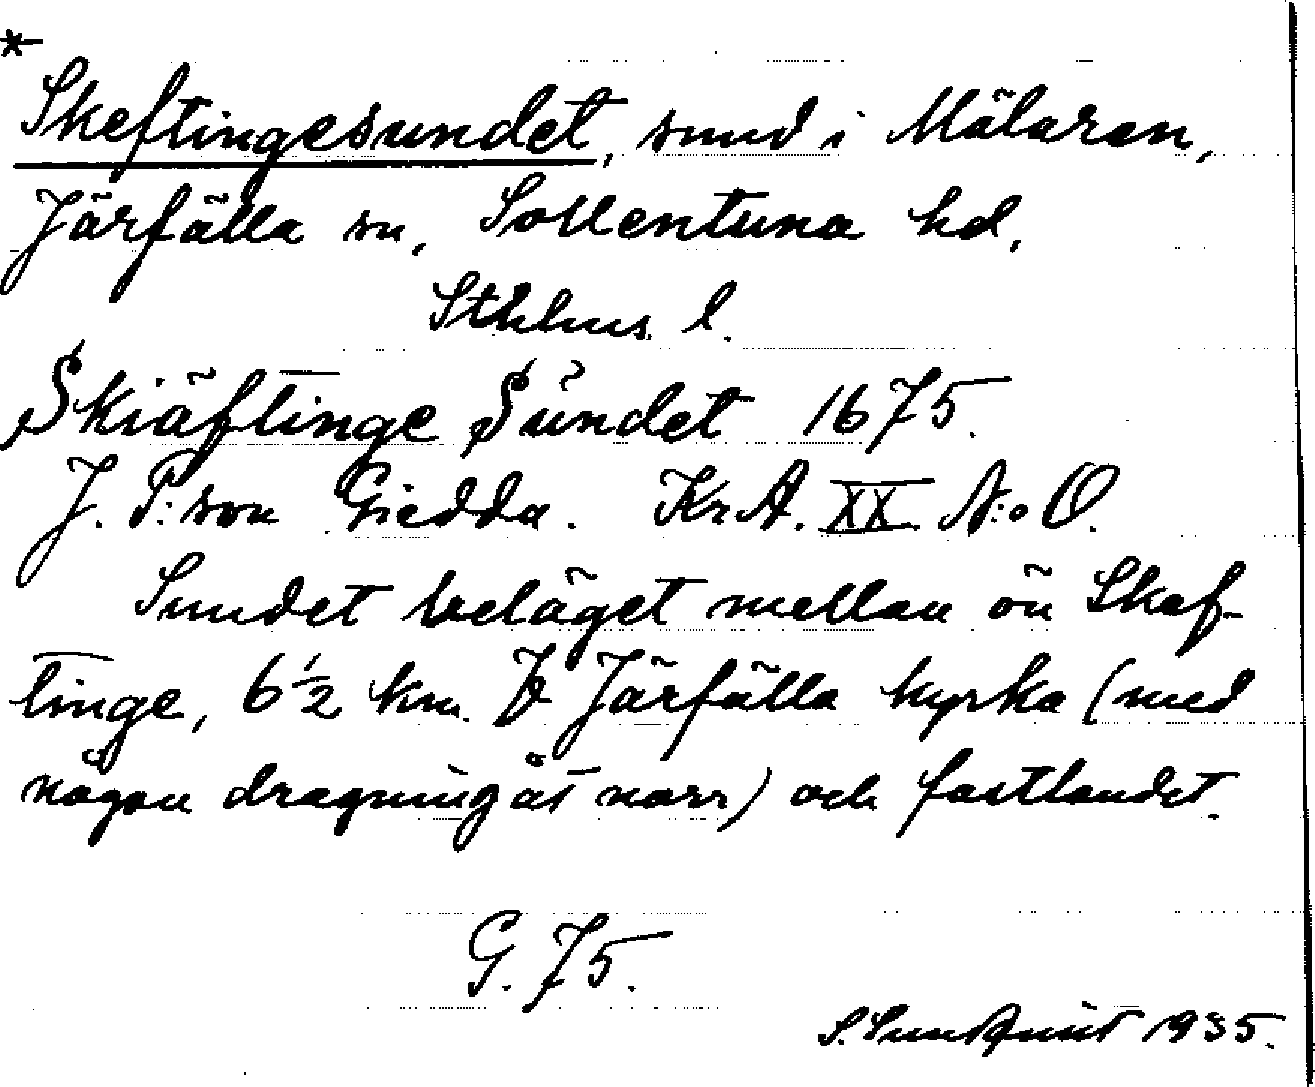 *
Skeftingesundet, sund i Mälaren,
Järfälla sn, Sollentuna hd,
Sthlms l.
Skiäftinge Sündet 1675.
J. P:son Giedda. KrA. XX N:o O.
Sundet beläget mellan ön Skäf-
tinge, 6 1/2 km. V Järfälla kyrka (med
någon dragning åt norr) och fastlandet.
G. 75.
S. Sundquist 1935.